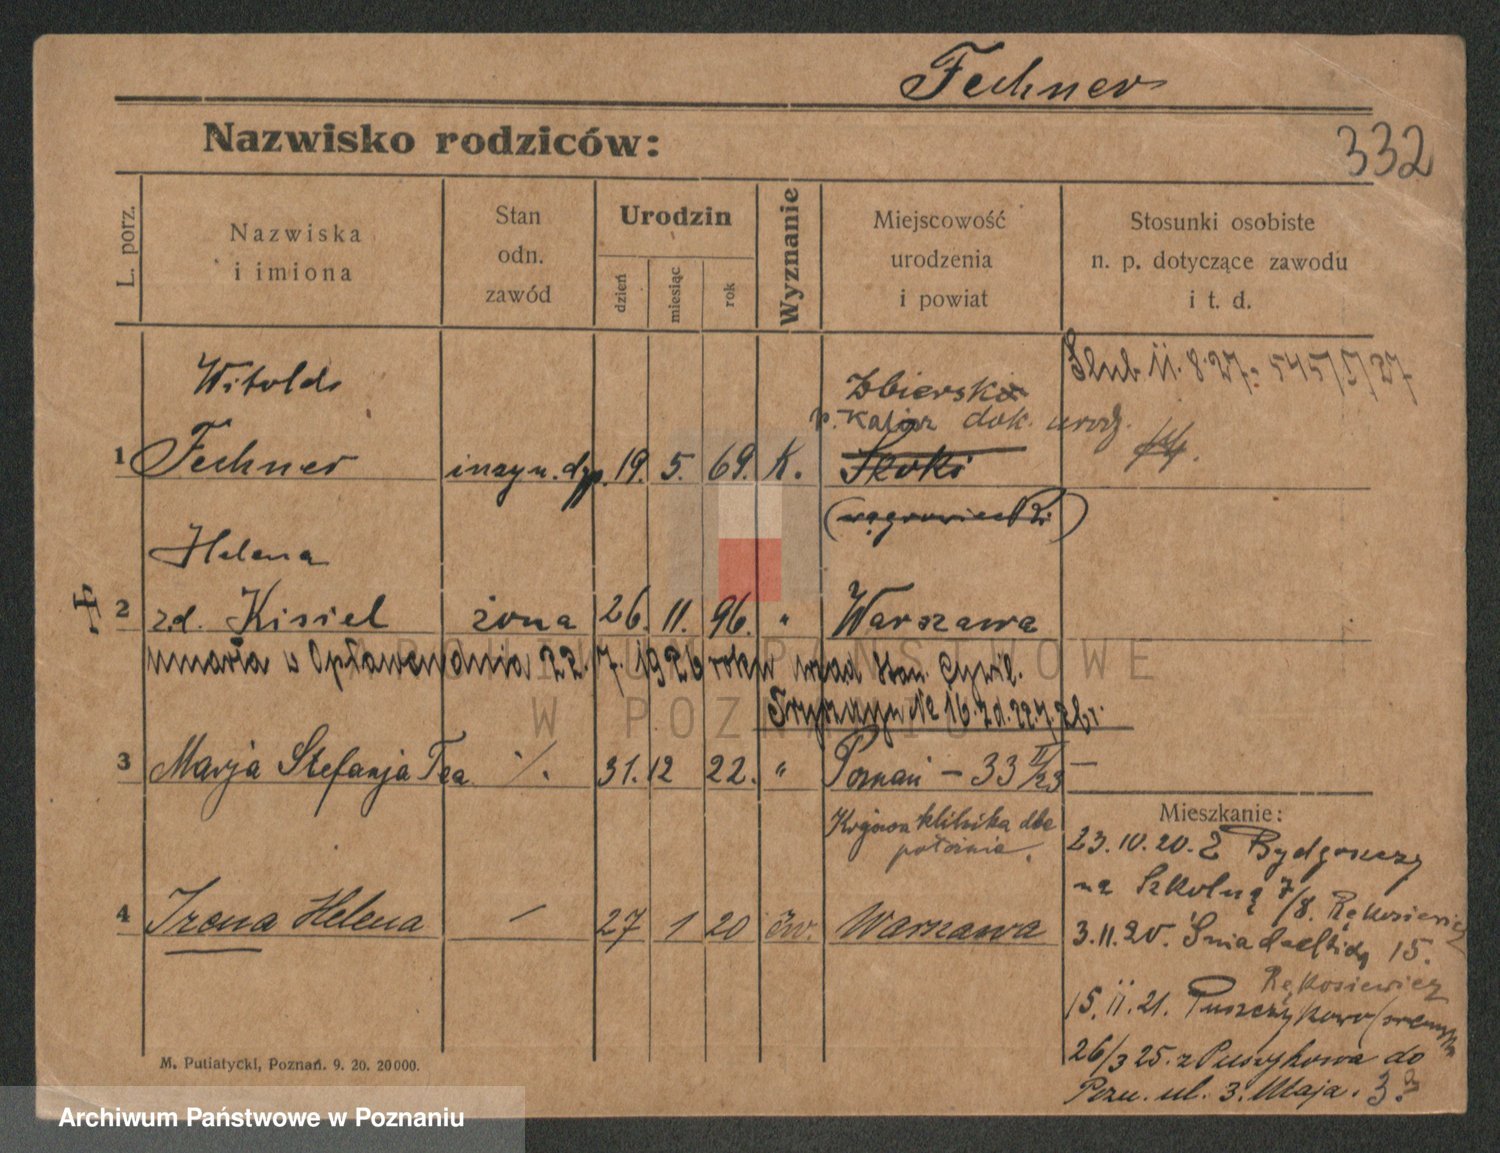 Fechner
332
Nazwisko rodziców:
L. porz.
Nazwiska
i imiona
Stan
odn.
zawód
Urodzin
dzień
miesiąc
rok
Wyznanie
Miejscowość
urodzenia
i powiat
Stosunki osobiste
n. p. dotyczące zawodu
i t. d.
Ślub 11.8.27. 545/V/27
Witold
Zbiersk
p. Kalisz dok. urodz.
1 Fechner inżyn. dyp. 19. 5. 69. K. Skoki
(wągrowiecki)
Helena
2 zd. Kisiel żona 26. 11. 96. " Warszawa
umarła w 22. 7. 1926 roku urząd Stan. Cywil.
№ 16. z d. 22.7.26 r.
3 Marja Stefanja Iza ·/. 31. 12 22. " Poznań – 33 II/23 –
Krajowa klinika dla
położnic.
4 Irena Helena – 27 1 20 Warszawa
Mieszkanie:
23.10.20. Z Bydgoszczy
na Szkolną 7/8. Rękosiewicz
3.11.20. Śniadeckich 15.
Rękosiewicz
15.11.21. Puszczykowo
26/3 25. z Puszczykowa do
Pozn. ul. 3. Maja. 3a
M. Putiatycki, Poznań. 9. 20. 20000.
ARCHIWUM PAŃSTWOWE
W POZNANIU
Archiwum Państwowe w Poznaniu